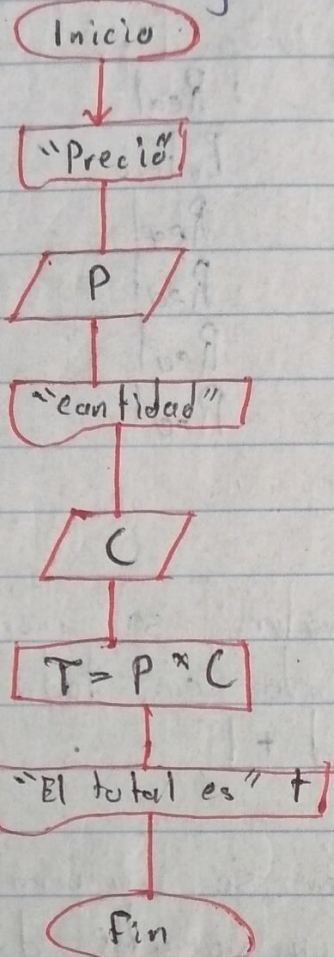 Inicio
"Precio"
P
"Cantidad"
C
T = P * C
"El total es" t
Fin